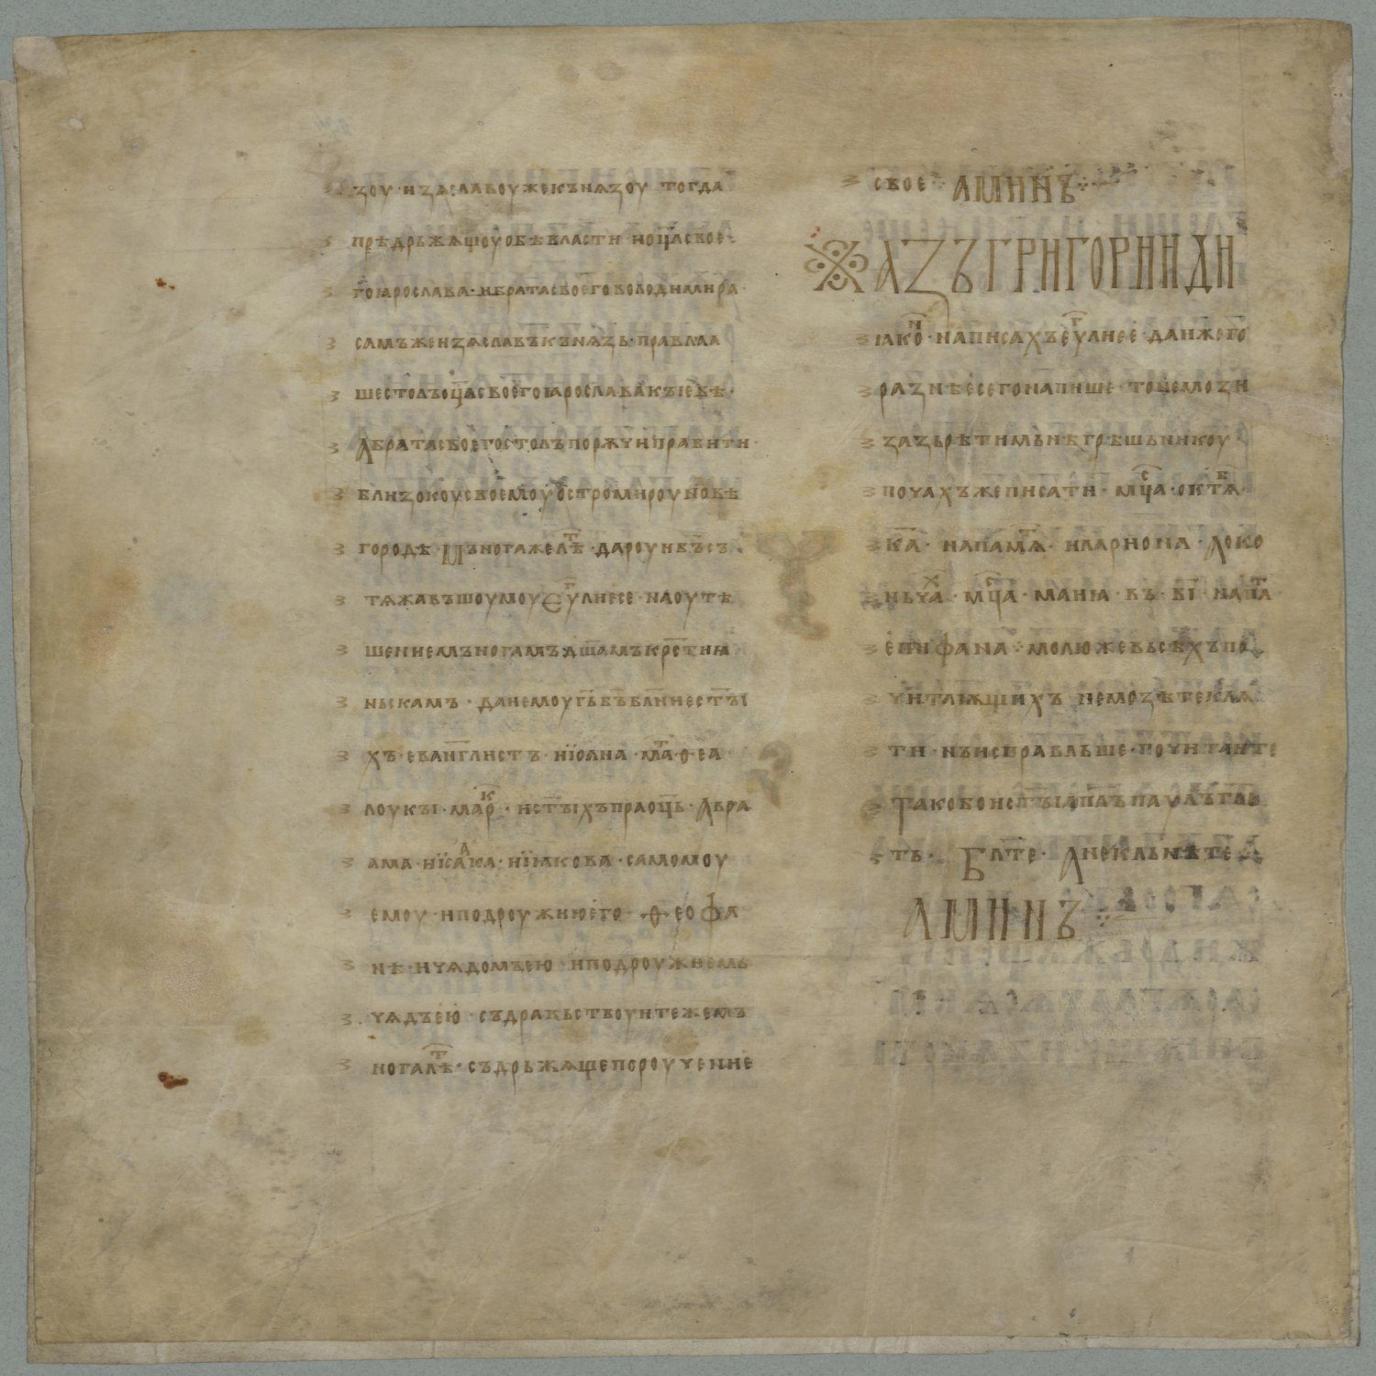 ꙁоу · иꙁѧславоу же кънѧꙁоу тогда
прѣдрьжѧщоу обѣ власти и оц҃а свое
го ꙗрослава · и брата своего володимира ·
самъ же иꙁѧславъ кънѧꙁь · правлꙗа
ше столъ оц҃а своего ꙗрослава кꙑевѣ ·
А брата своего столъ порѫчи правити
близокоу своемоу остромироу новѣ
городѣ · Мънога же лѣт҃ · дароуи б҃ъ съ
тѧжавъшоумоу Еѵⷢ҇лие се · на оутѣ
шение мъногамъ дш҃амъ крс҃тиꙗ
ньскамъ · даи емоу г҃ь б҃ъ блⷭ҇вние ст҃ꙑ
хъ · еванг҃листъ · и иоана · маⷮ · ѳеа ·
лоукꙑ · марⷦ · и ст҃ꙑхъ праоц҃ь · Авра
ама · и їсаⷶка · и їꙗкова · самомоу
емоу · и подроужию его · ѳеофа
нѣ · и чѧдомъ ею · и подроужиемь
чѧдъ ею · съдравьствоуите же мъ
ногаⷧ лѣⷮ · съдрьжѧще пороучение
свое · АМИНЪ
АꙀЪ ГРИГОРИИ ДИ
ꙗкоⷩ · написахъ еѵⷢ҇лие е · да иже го
раꙁнѣе сего напише · то не моꙁи
ꙁаꙁьрѣти мьнѣ грѣшьникоу ·
почахъ же писати · мⷭ҇ца · октѧⷡ ·
к҃а · на памѧⷮ · илариона · А око
ньчаⷯ · мⷭ҇ца · маиꙗ · въ · в҃і · на паⷨ ·
епифана · молю же вьсѣхъ по
читаѭщихъ не моꙁѣте клѧ
ти · нъ исправльше · почитаите
Тако бо и ст҃ꙑ ап҃лъ паулъ гл҃е
ть · Бл҃те · А не кльнѣте
АМИНЪ